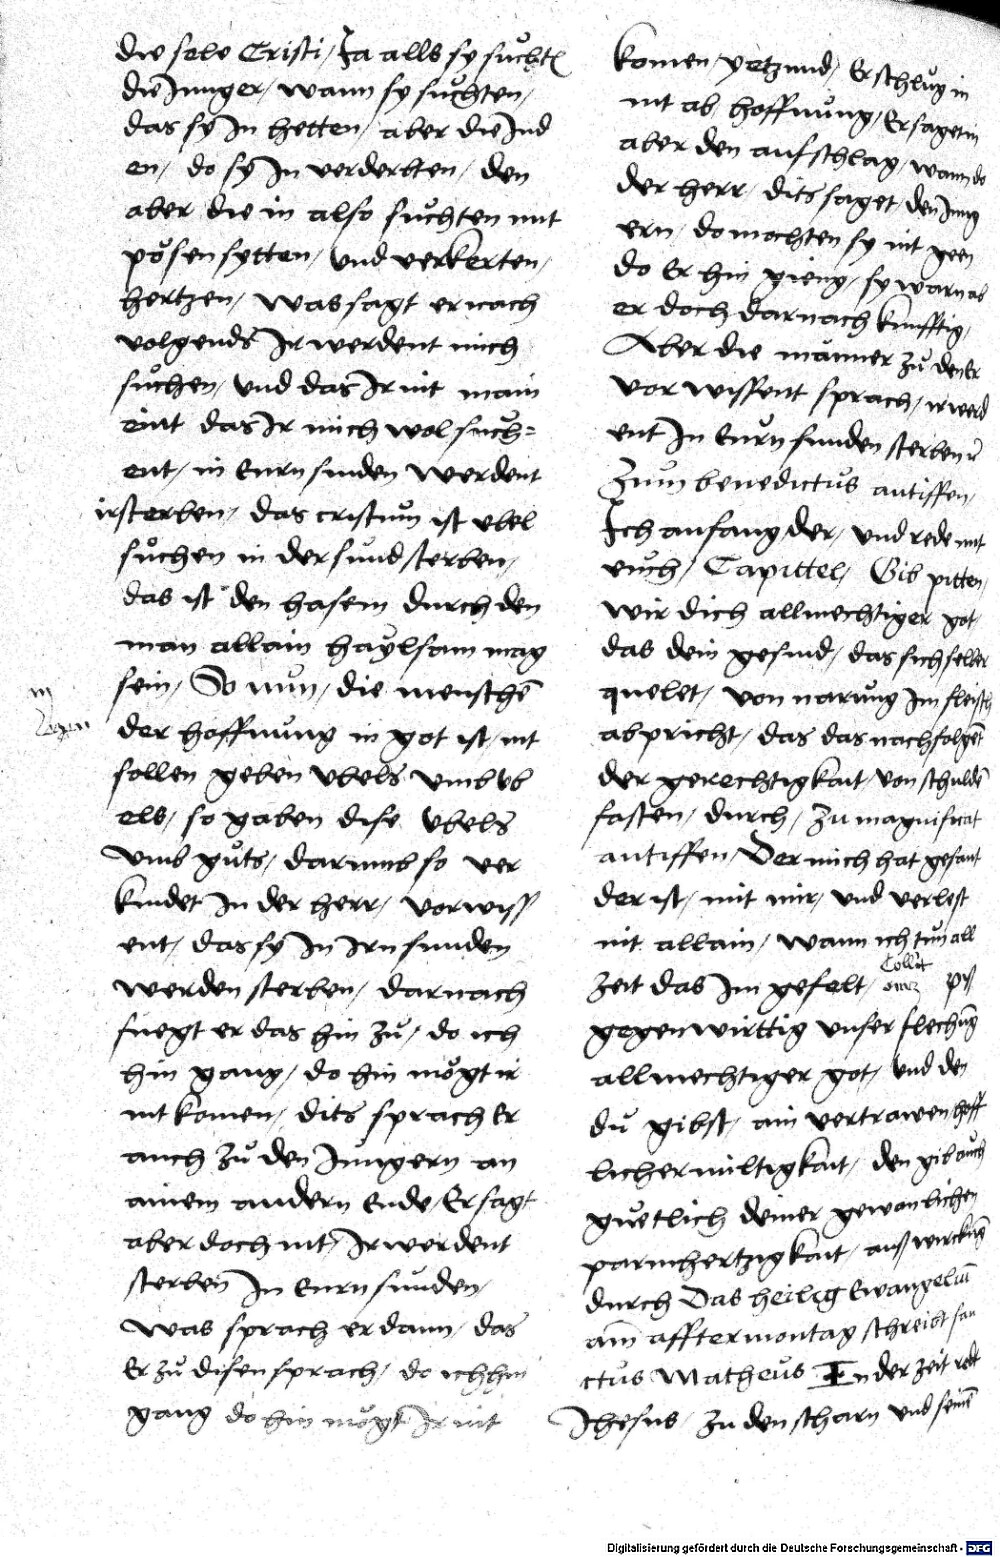 die sele Cristi / Ja alls sy suͦchtē
die Junger / wann sy suͦchten /
das sy Jn hetten / aber die Jud
en / do sy Jn verderbten / den
aber die in also suͦchten mit
poͤsen sytten / vnd verkerten /
hertzen / was sagt er nach
volgends Ir werdent mich
suͦchen / vnd das Ir nit main
eint das Ir mich wol suͦch=
ent / in Eurn sunden werdent
ir sterben / das cristum ist vbel
suͦchen in der sund sterben /
das ist den hasem durch den
man allain haylsam mag
sein / So nun / die menschē
der hoffnung in got ist / nit
sollen geben vbels vmb vb
els / so gaben dise vbels
vmb guͦts / darumb so ver
kundet Jn der herr / vorwiss
ent / das sy Jn Irn sunden
werden sterben / darnach
fuegt er das hin zuͦ / do ich
hin gang / do hin moͤgt ir
nit komen / dits sprach Er
auch zuͦ den Jungern an
ainem andern Ende / Er sagt
aber doch nit / Ir werdent
sterben Jn Eurn sunden /
Was sprach er dann / das
Er zuͦ disen sprach / do ich hin
gang do hin moͤgt Ir nit
komen / yetzund / Er schluͦg in
nit ab hoffnung / Er saget in
aber den aufschlag / wann do
der herr / dits saget den Jung
ern / do mochten sy nit geen
do Er hin gieng / sy warn ab
er doch darnach kunfftig /
Aber die männer zuͦ den Er
vor wissent sprach / ir werd
ent Jn Eurn sunden sterben
Zum benedictus antiffen /
Ich anfang der / vnd rede mit
euch / Capittel / Gib pitten /
wir dich allmechtiger got /
das dein gesind / das sich selber
quelet / von narung Im fleisch
abpricht / das das nachfolgēt
der gerechtigkait / von schuldē
fasten / durch / Zu magnificat
antiffen / Der mich hat gesant
der ist / mit mir / vnd verlest
nit allain / wann ich tun all
zeit das Im gefelt /
Collet
gegenwirttig vnser flechūg
allmechtiger got / vnd den
du gibst / ain vertrawen hoff
licher miltigkait / den gib auch
guͤetlich deiner gewonlichen
parmhertzigkait / auß wirckūg
durch Das heilig Ewangeliū
am afftermontag schreibt san
ctus Matheus In der zeit redt
Jhesus / zu den scharn vnd seinē
Digitalisierung gefördert durch die Deutsche Forschungsgemeinschaft - DFG